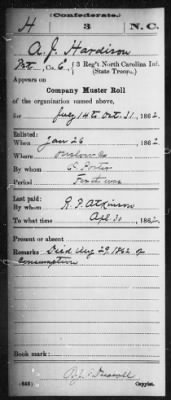 (Confederate.)
H 3 N.C.
A. J. Hardison
Pvt, Co. E, 3 Reg't North Carolina Inf.
(State Troops.)
Appears on
Company Muster Roll
of the organization named above,
for July 1st to Oct. 31, 1862.
Enlisted:
When Jan 26, 1862
Where Onslow Co
By whom
Period For the war
Last paid:
By whom R. P. Atkinson
To what time Apl. 30, 1862
Present or absent
Remarks Died Aug 29, 1862 of
Consumption
Book mark:
(642) Copyist.